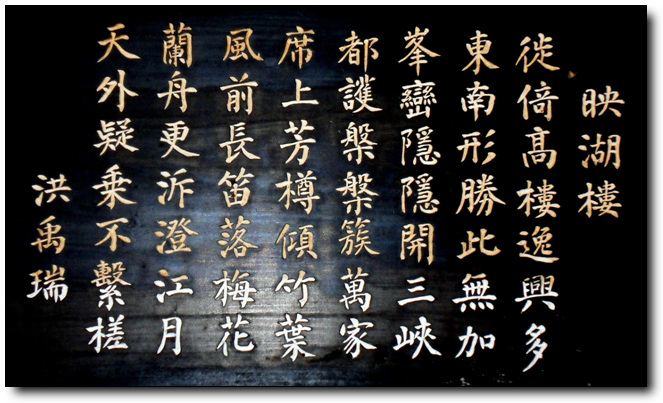 映湖樓
徙倚髙樓逸興多
東南形勝此無加
峯巒隱隱開三峽
都護槃槃簇萬家
席上芳樽傾竹葉
風前長笛落梅花
蘭舟更泝澄江月
天外疑乗不繫槎
洪禹瑞